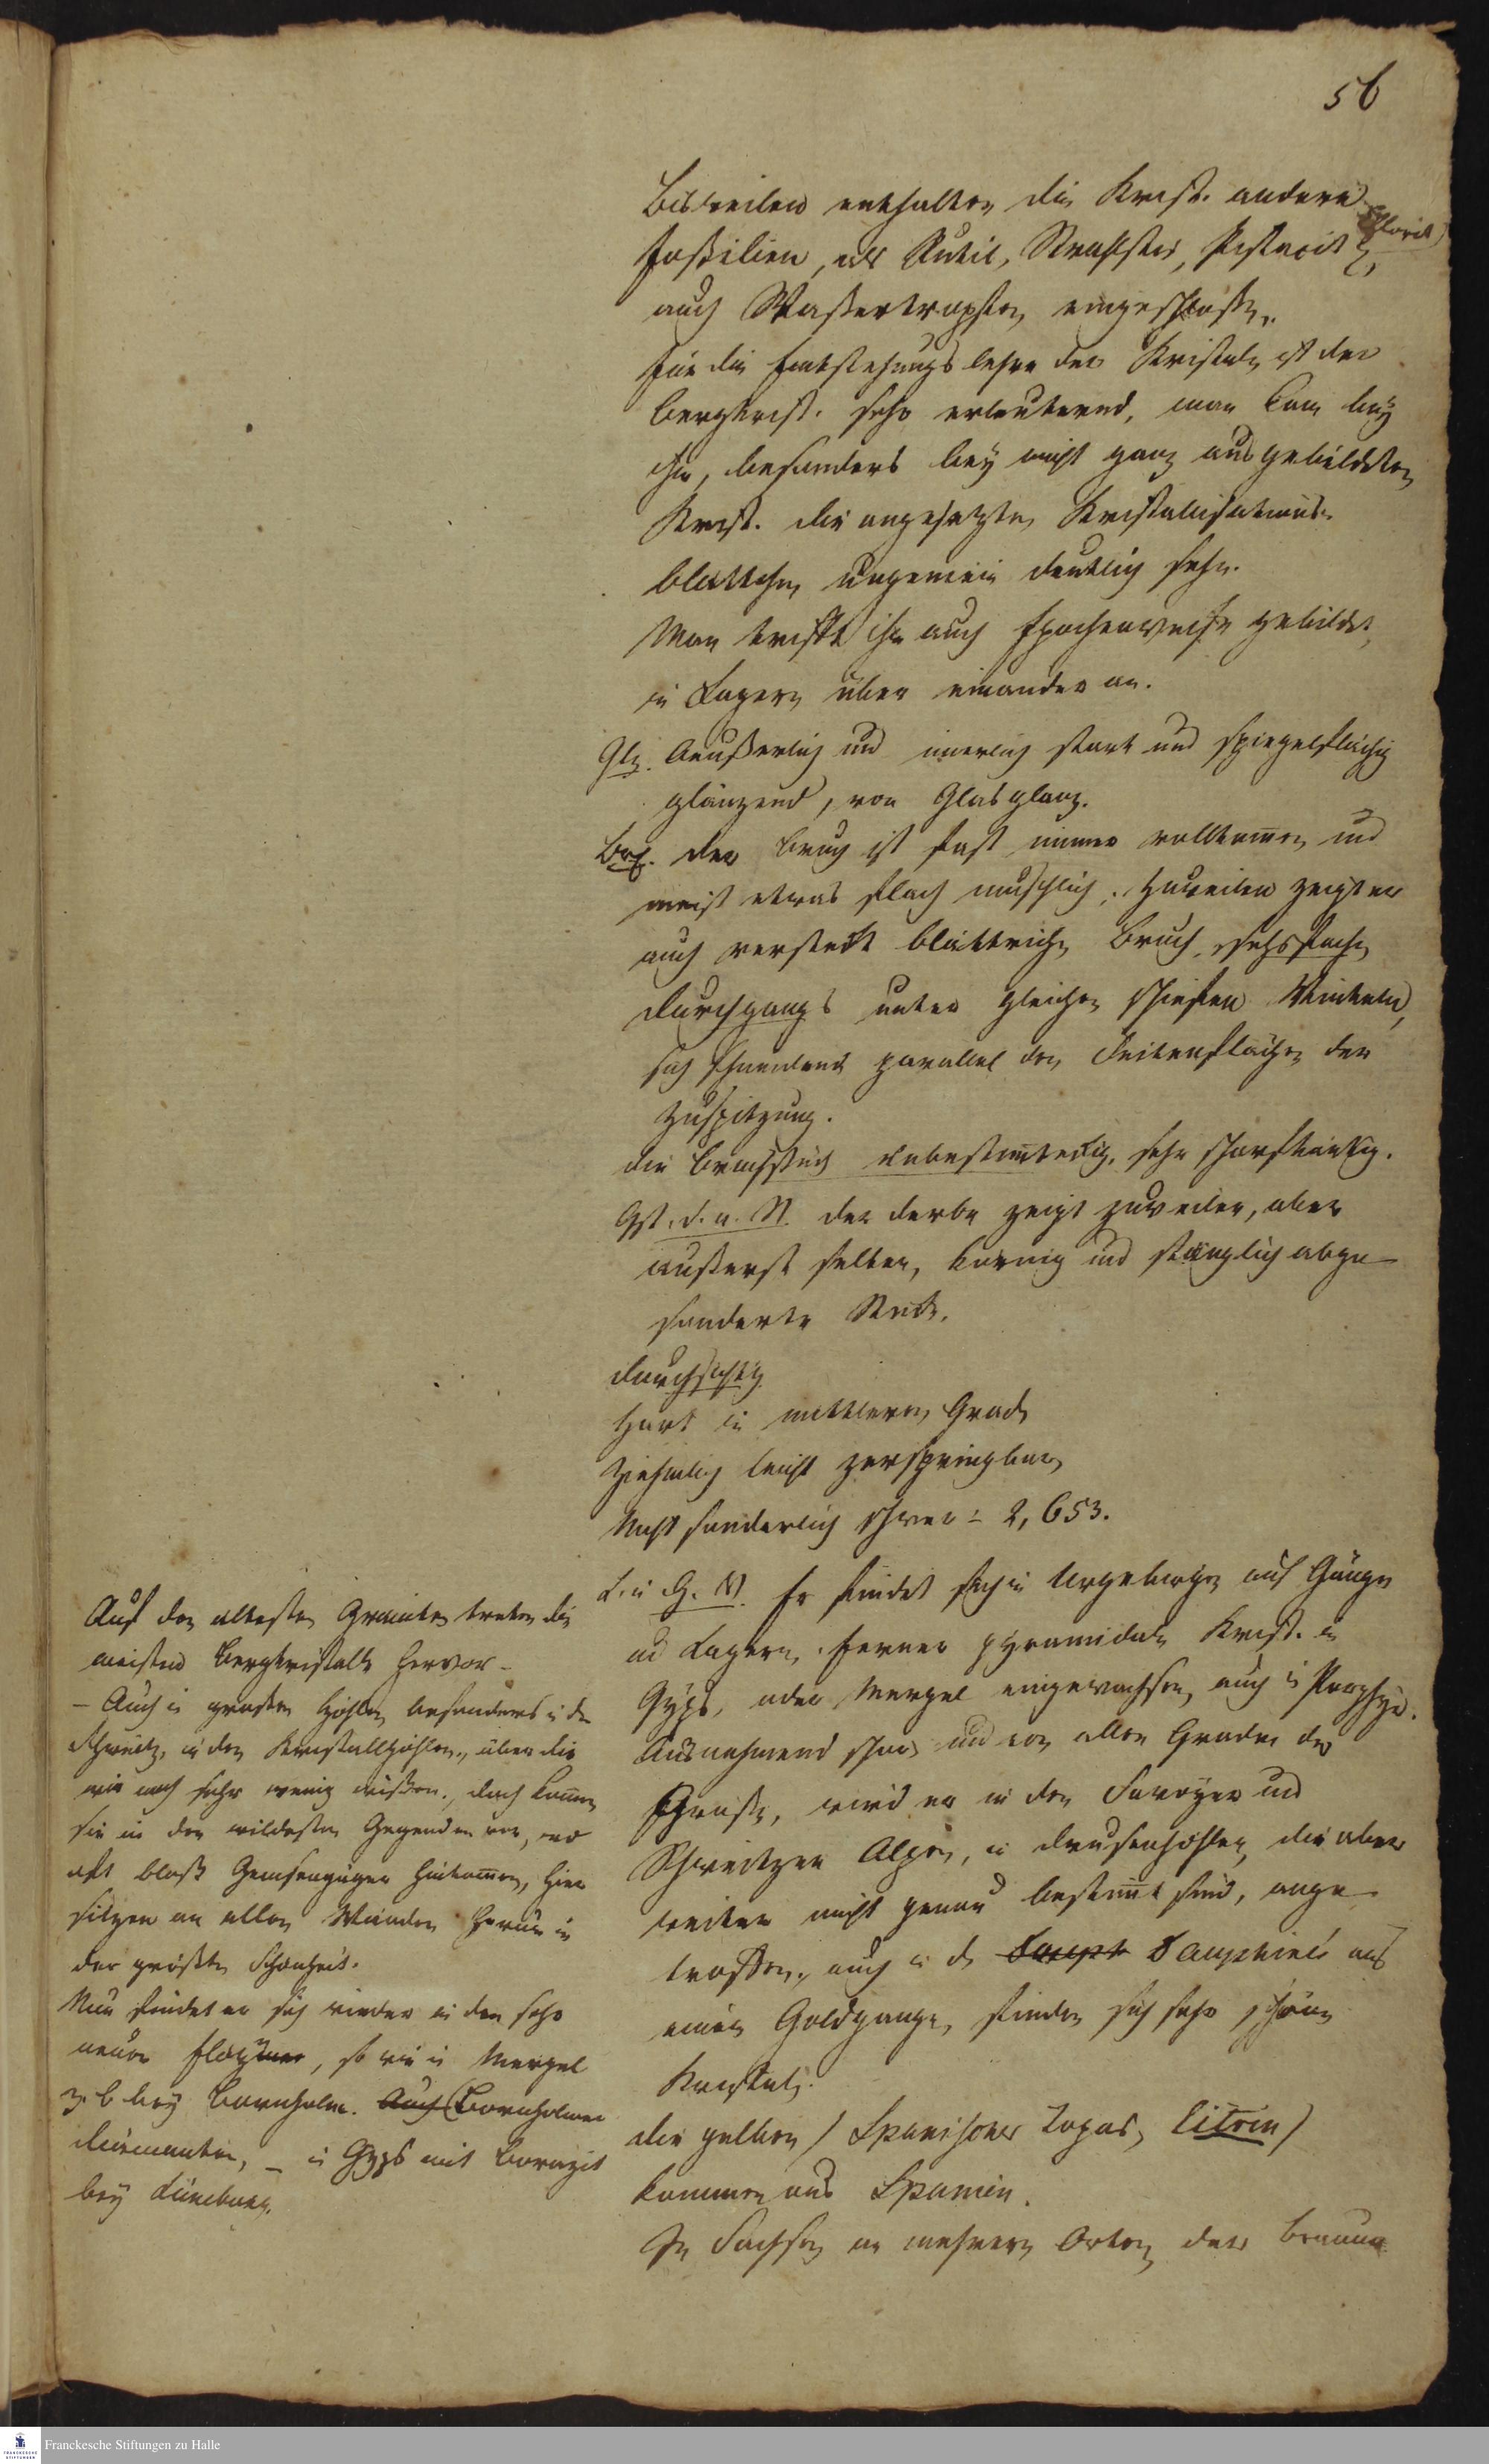 56
Bisweilen enthalten die Krist. andere
Foßilien, als Rutil, Strahlstein, Pistacit Chlorit
auch Waßertropfen eingeschloßen.
Für die Entstehungslehre der Kristale ist der
Bergkrist. sehr erleuternd, man kan bey
ihm, besonders bey nicht ganz ausgebildeten
Krist. die angesetzten Kristallisations
blättchen ungemein deutlich sehn.
Man trifft ihn auch Epochenweise gebildet
in Lagern über einander an.
Glz. Aeußerlich und innerlich stark und spiegelflächig
glänzend, von Glasglanz.
Brch. der Bruch ist fast immer vollkom̄en und
meist etwas flach muschlich; Zuweilen zeigt er
auch versteckt blättrichen Bruch, sechsfachen
Durchgangs unter gleichen schiefen Winkeln,
sich schneidend parallel den Seitenflächen der
Zuspitzung.
die Bruchstück unbestim̄teckig, sehr scharfkantig.
Gst. d. a. St. der derbe zeigt zuweilen, aber
äußerst selten, körnig und stänglich abge-
sonderte Stücke.
durchsichtig
Hart in mittlern Grade
Ziehmlich leicht zerspringbar
Nicht sonderlich schwer = 2,653.
Er findet sich in Urgebirgen auf Gängen
und Lagern, ferner pyramidale Krist. in
Gyps, oder Mergel eingewachsen, auch in Porphyr.
Ausnehmend schön und von allen Graden der
Größe, wird er in den Savoyer und
Schweitzer Alpen, in Drusenhöhlen, die aber
weiter nicht genau bestim̄t sind, ange-
troffen, auch in der Dauphiné auf
einem Goldgange, finden sich sehr schöne
Kristale.
die gelben / Spanischer Topas, Citrin /
kommen aus Spanien.
In Sachsen an mehrern Orten, der braune
Auf den altesten Graniten treten die
meisten Bergkristalle hervor-
– Auch in großen Höhlen besonders in der
Schweitz, in den Kristallhöhlen, über die
wir noch sehr wenig wißen, doch kom̄en
sie in den wildesten Gegenden vor, wo
oft bloß Gemsenjäger hinkom̄en, hier
sitzen an allen Wänden herum in
der größten Schönheit.
Nun findet er sich wieder in den sehr
neuen Flöz, so wie in Mergel
z. b bey Bornholm. Auch (Bornholmer
diamanten, – in Gyps mit Borazit
bey Lüneburg.
Franckesche Stiftungen zu Halle